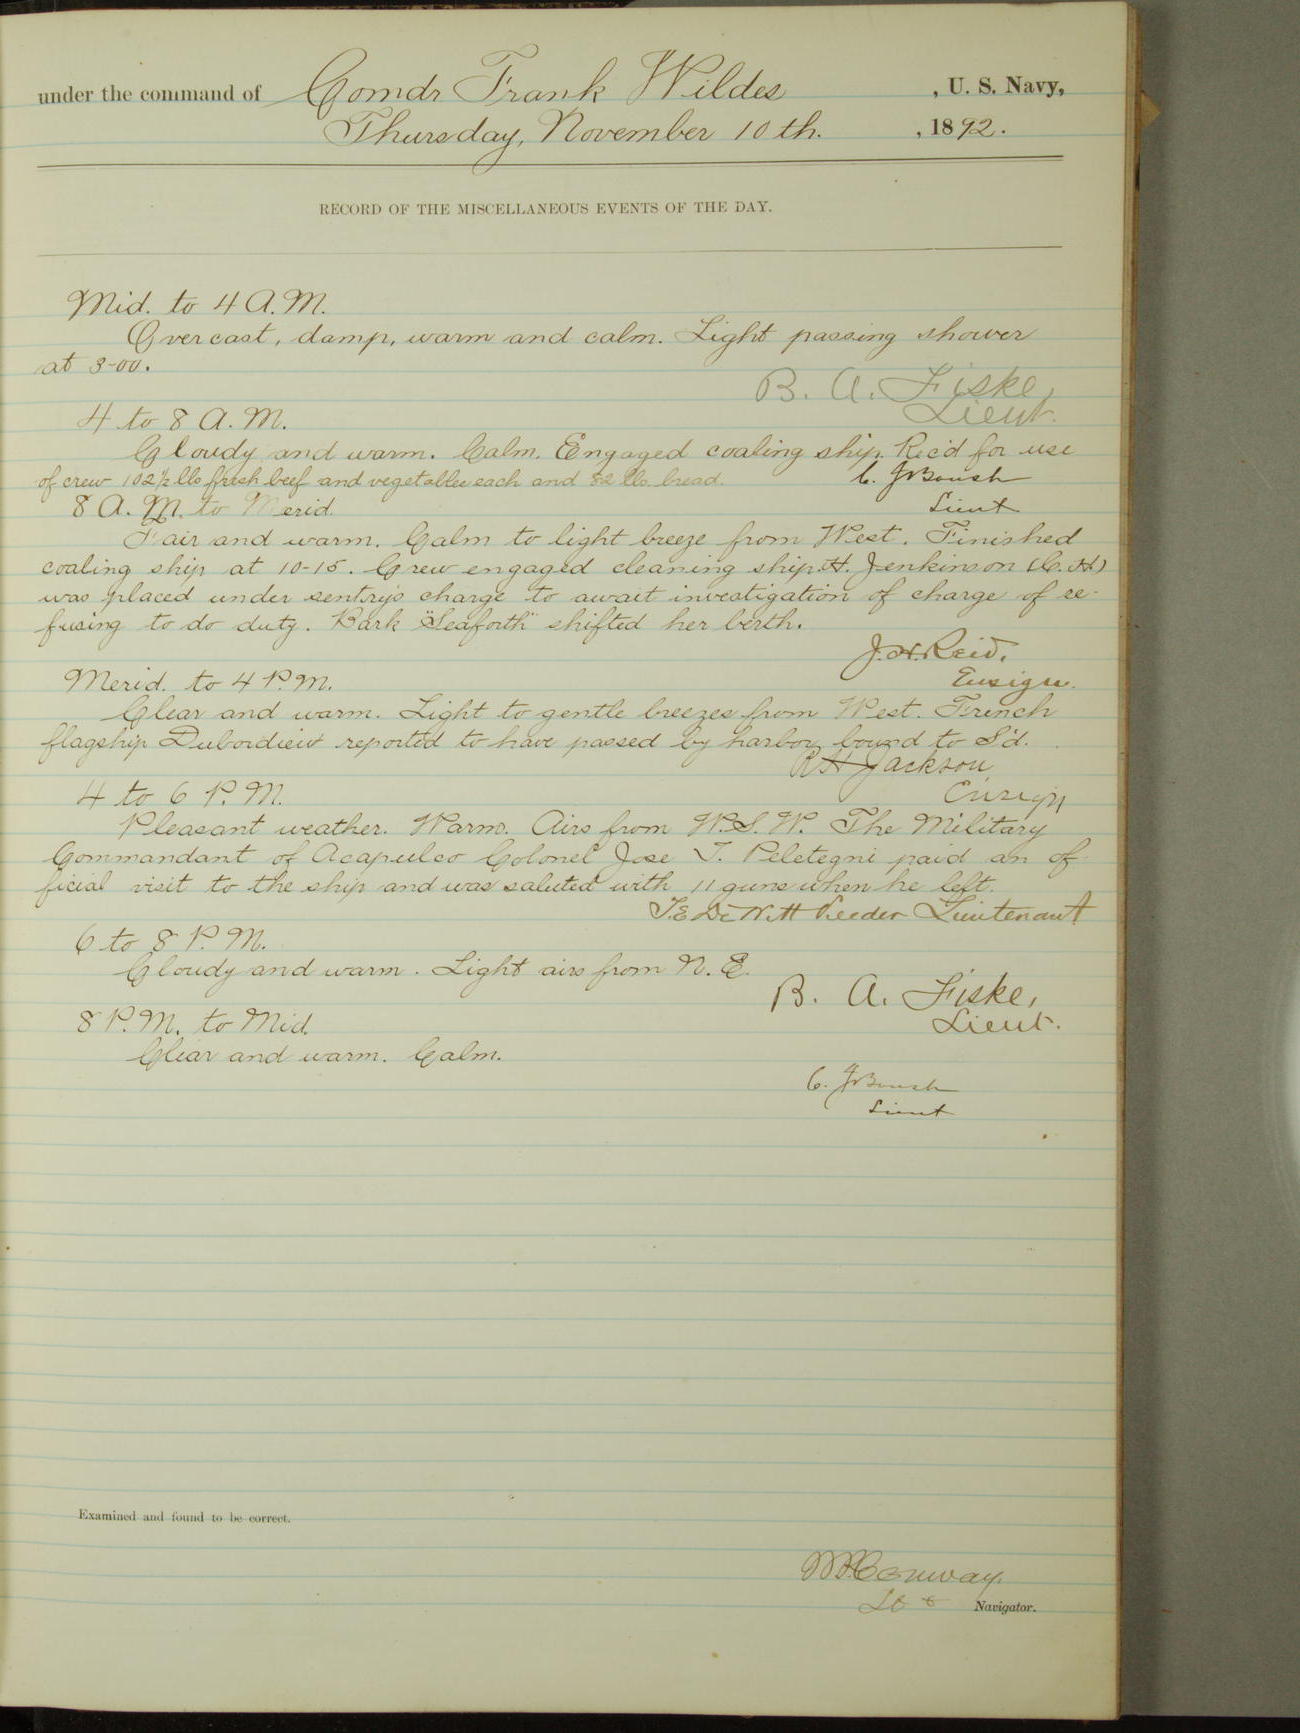 under the command of Comdr Frank Wildes , U. S. Navy,
Thursday, November 10th. , 1892.
RECORD OF THE MISCELLANEOUS EVENTS OF THE DAY.
Mid. to 4 A.M.
Overcast, damp, warm and calm. Light passing shower
at 3-00.
B. A. Fiske,
Lieut.
4 to 8 A.M.
Cloudy and warm. Calm. Engaged coaling ship. Rec'd for use
of crew 102 1/2 lbs fresh beef and vegetables each and 82 lbs. bread.
C. J. Boush
Lieut
8 A.M. to Merid.
Fair and warm. Calm to light breeze from West. Finished
coaling ship at 10-15. Crew engaged cleaning ship. H. Jenkinson (C.H.)
was placed under sentry's charge to await investigation of charge of re-
fusing to do duty. Bark "Seaforth" shifted her berth.
J.H. Reid,
Ensign.
Merid. to 4 P.M.
Clear and warm. Light to gentle breezes from West. French
flagship Dubordieu reported to have passed by harbor bound to S'd.
R H Jackson
Ensign
4 to 6 P.M.
Pleasant weather. Warm. Airs from W.S.W. The Military
Commandant of Acapulco Colonel Jose T. Peletegni paid an of-
ficial visit to the ship and was saluted with 11 guns when he left.
T. E. DeWitt Veeder Lieutenant
6 to 8 P.M.
Cloudy and warm. Light airs from N.E.
B. A. Fiske,
Lieut.
8 P.M. to Mid.
Clear and warm. Calm.
C. J. Boush
Lieut
Examined and found to be correct.
Conway
Lt Navigator.